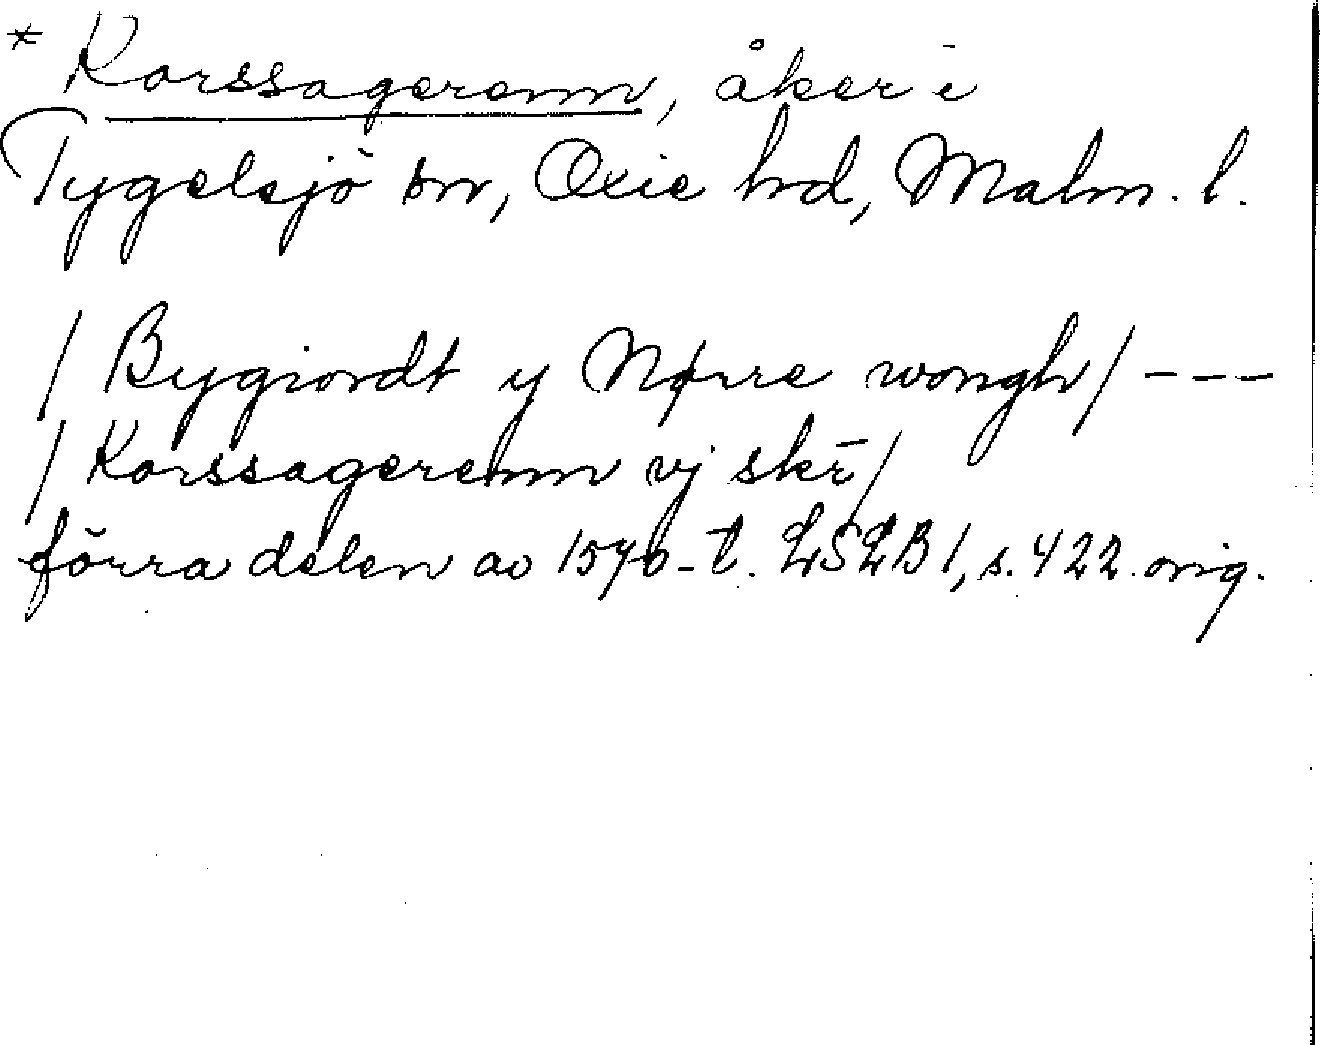 * Korssagerenn, åker i
Tygelsjö sn, Oxie hd, Malm. l.
/ Bygiordt y Nørre wongh / ---
/ Korssagerenn vj skr̄ /
förra delen av 1570-t. LSLB 1, s. 422. orig.